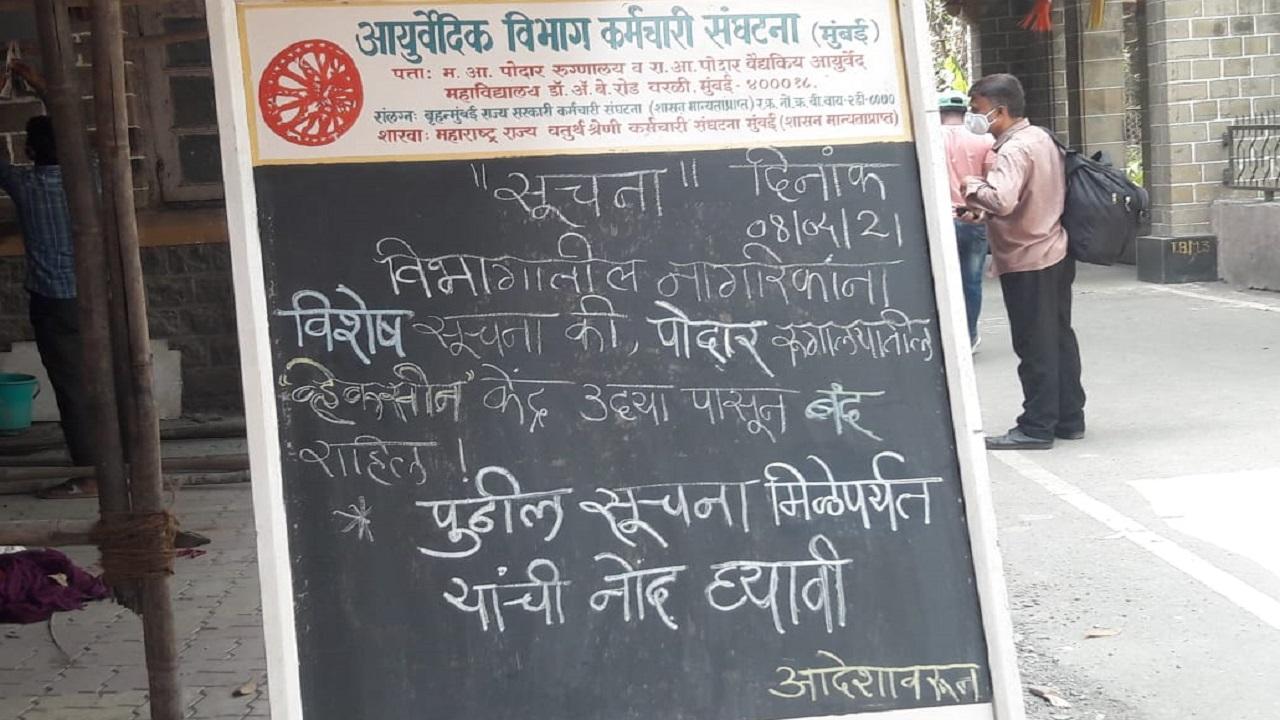 आयुर्वेदिक विभाग कर्मचारी संघटना (मुंबई)
पत्ता: म. आ. पोदार रुग्णालय व रा. आ. पोदार वैद्यकिय आयुर्वेद
महाविद्यालय डॉ. ॲ. बे. रोड वरळी, मुंबई - ४०००१८.
संलग्न: बृहन्मुंबई राज्य सरकारी कर्मचारी संघटना (शासन मान्यताप्राप्त)
शाखा: महाराष्ट्र राज्य चतुर्थ श्रेणी कर्मचारी संघटना मुंबई (शासन मान्यताप्राप्त)
"सूचना" दिनांक
०४|०५|२१
विभागातील नागरिकांना
विशेष सूचना की, पोदार रुग्णालयातील
"व्हेक्सीन" केंद्र उद्या पासून बंद
राहिल !
* पुढील सूचना मिळेपर्यंत
यांची नोंद घ्यावी
आदेशावरून